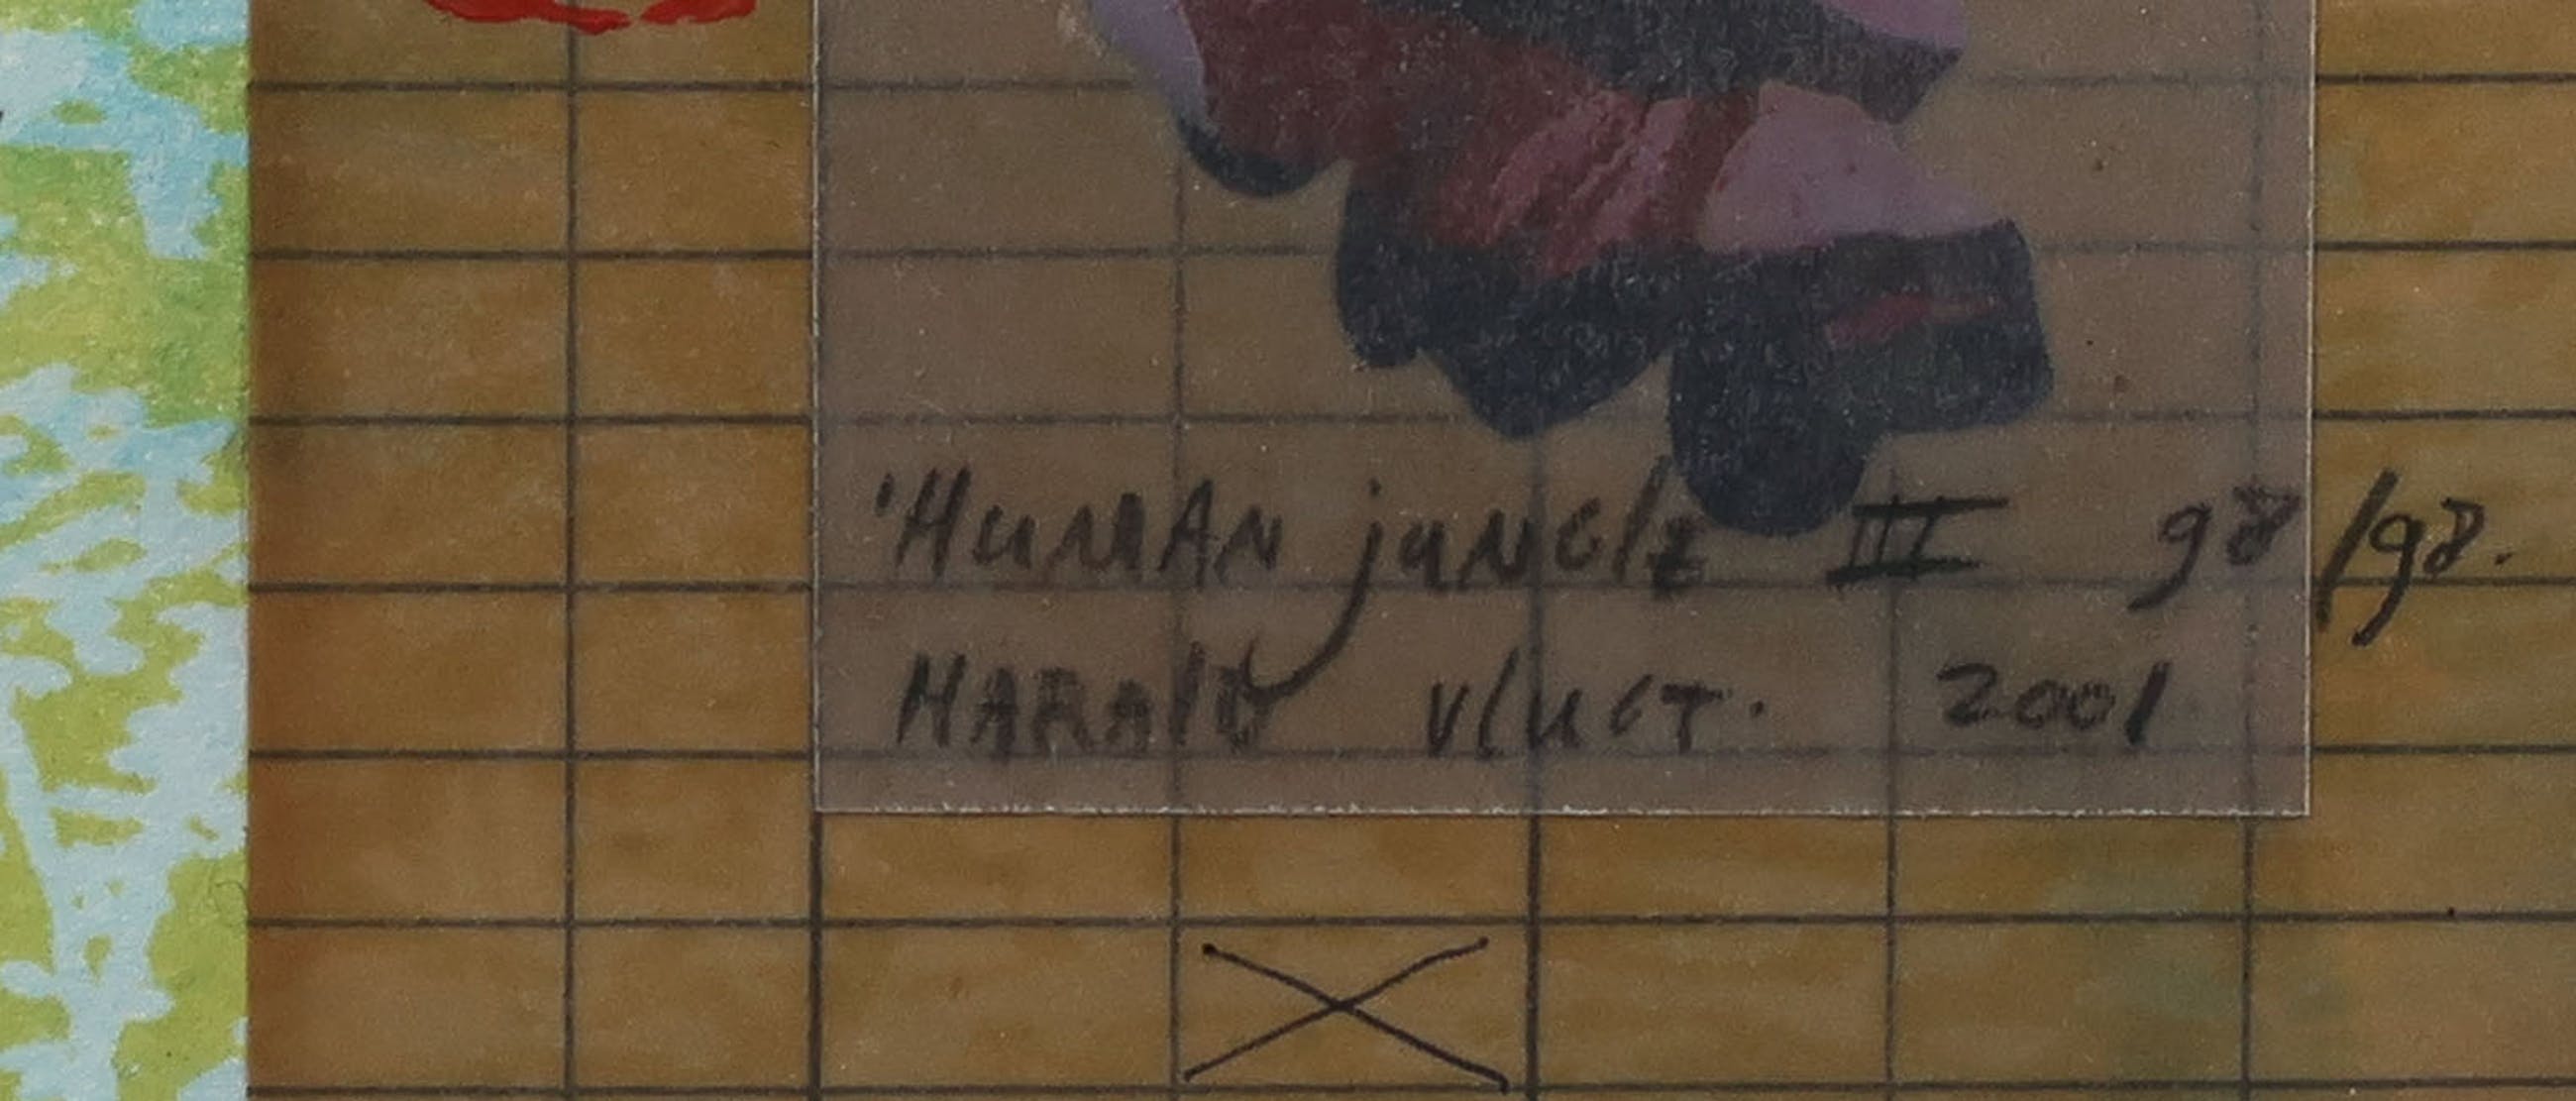 'HUMAN jUNGlE III 98/98.
HARAlD VlUGT. 2001